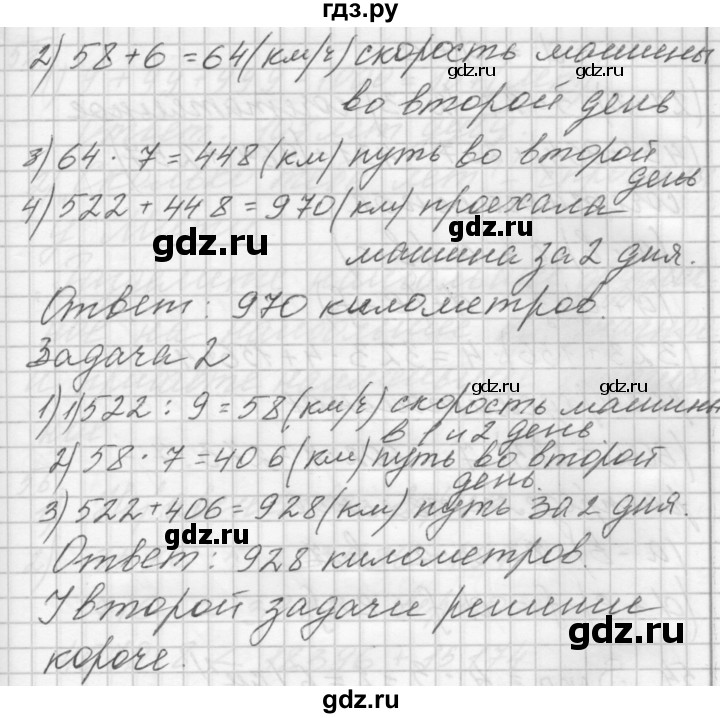 гдз.ру
2) 58+6=64(км/ч) скорость машины
во второй день
3) 64 · 7=448(км) путь во второй
день
4) 522+448=970(км) проехала
машина за 2 дня.
Ответ: 970 километров.
Задача 2
1) 1) 522 : 9=58(км/ч) скорость машины
в 1 и 2 день
2) 58 · 7=406(км) путь во второй
день.
3) 522+406=928(км) путь за 2 дня.
Ответ: 928 километров.
У второй задачи решение
короче.
gdz.ru
gdz.ru
gdz.ru
gdz.ru
gdz.ru
gdz.ru
gdz.ru
gdz.ru
gdz.ru
gdz.ru
gdz.ru